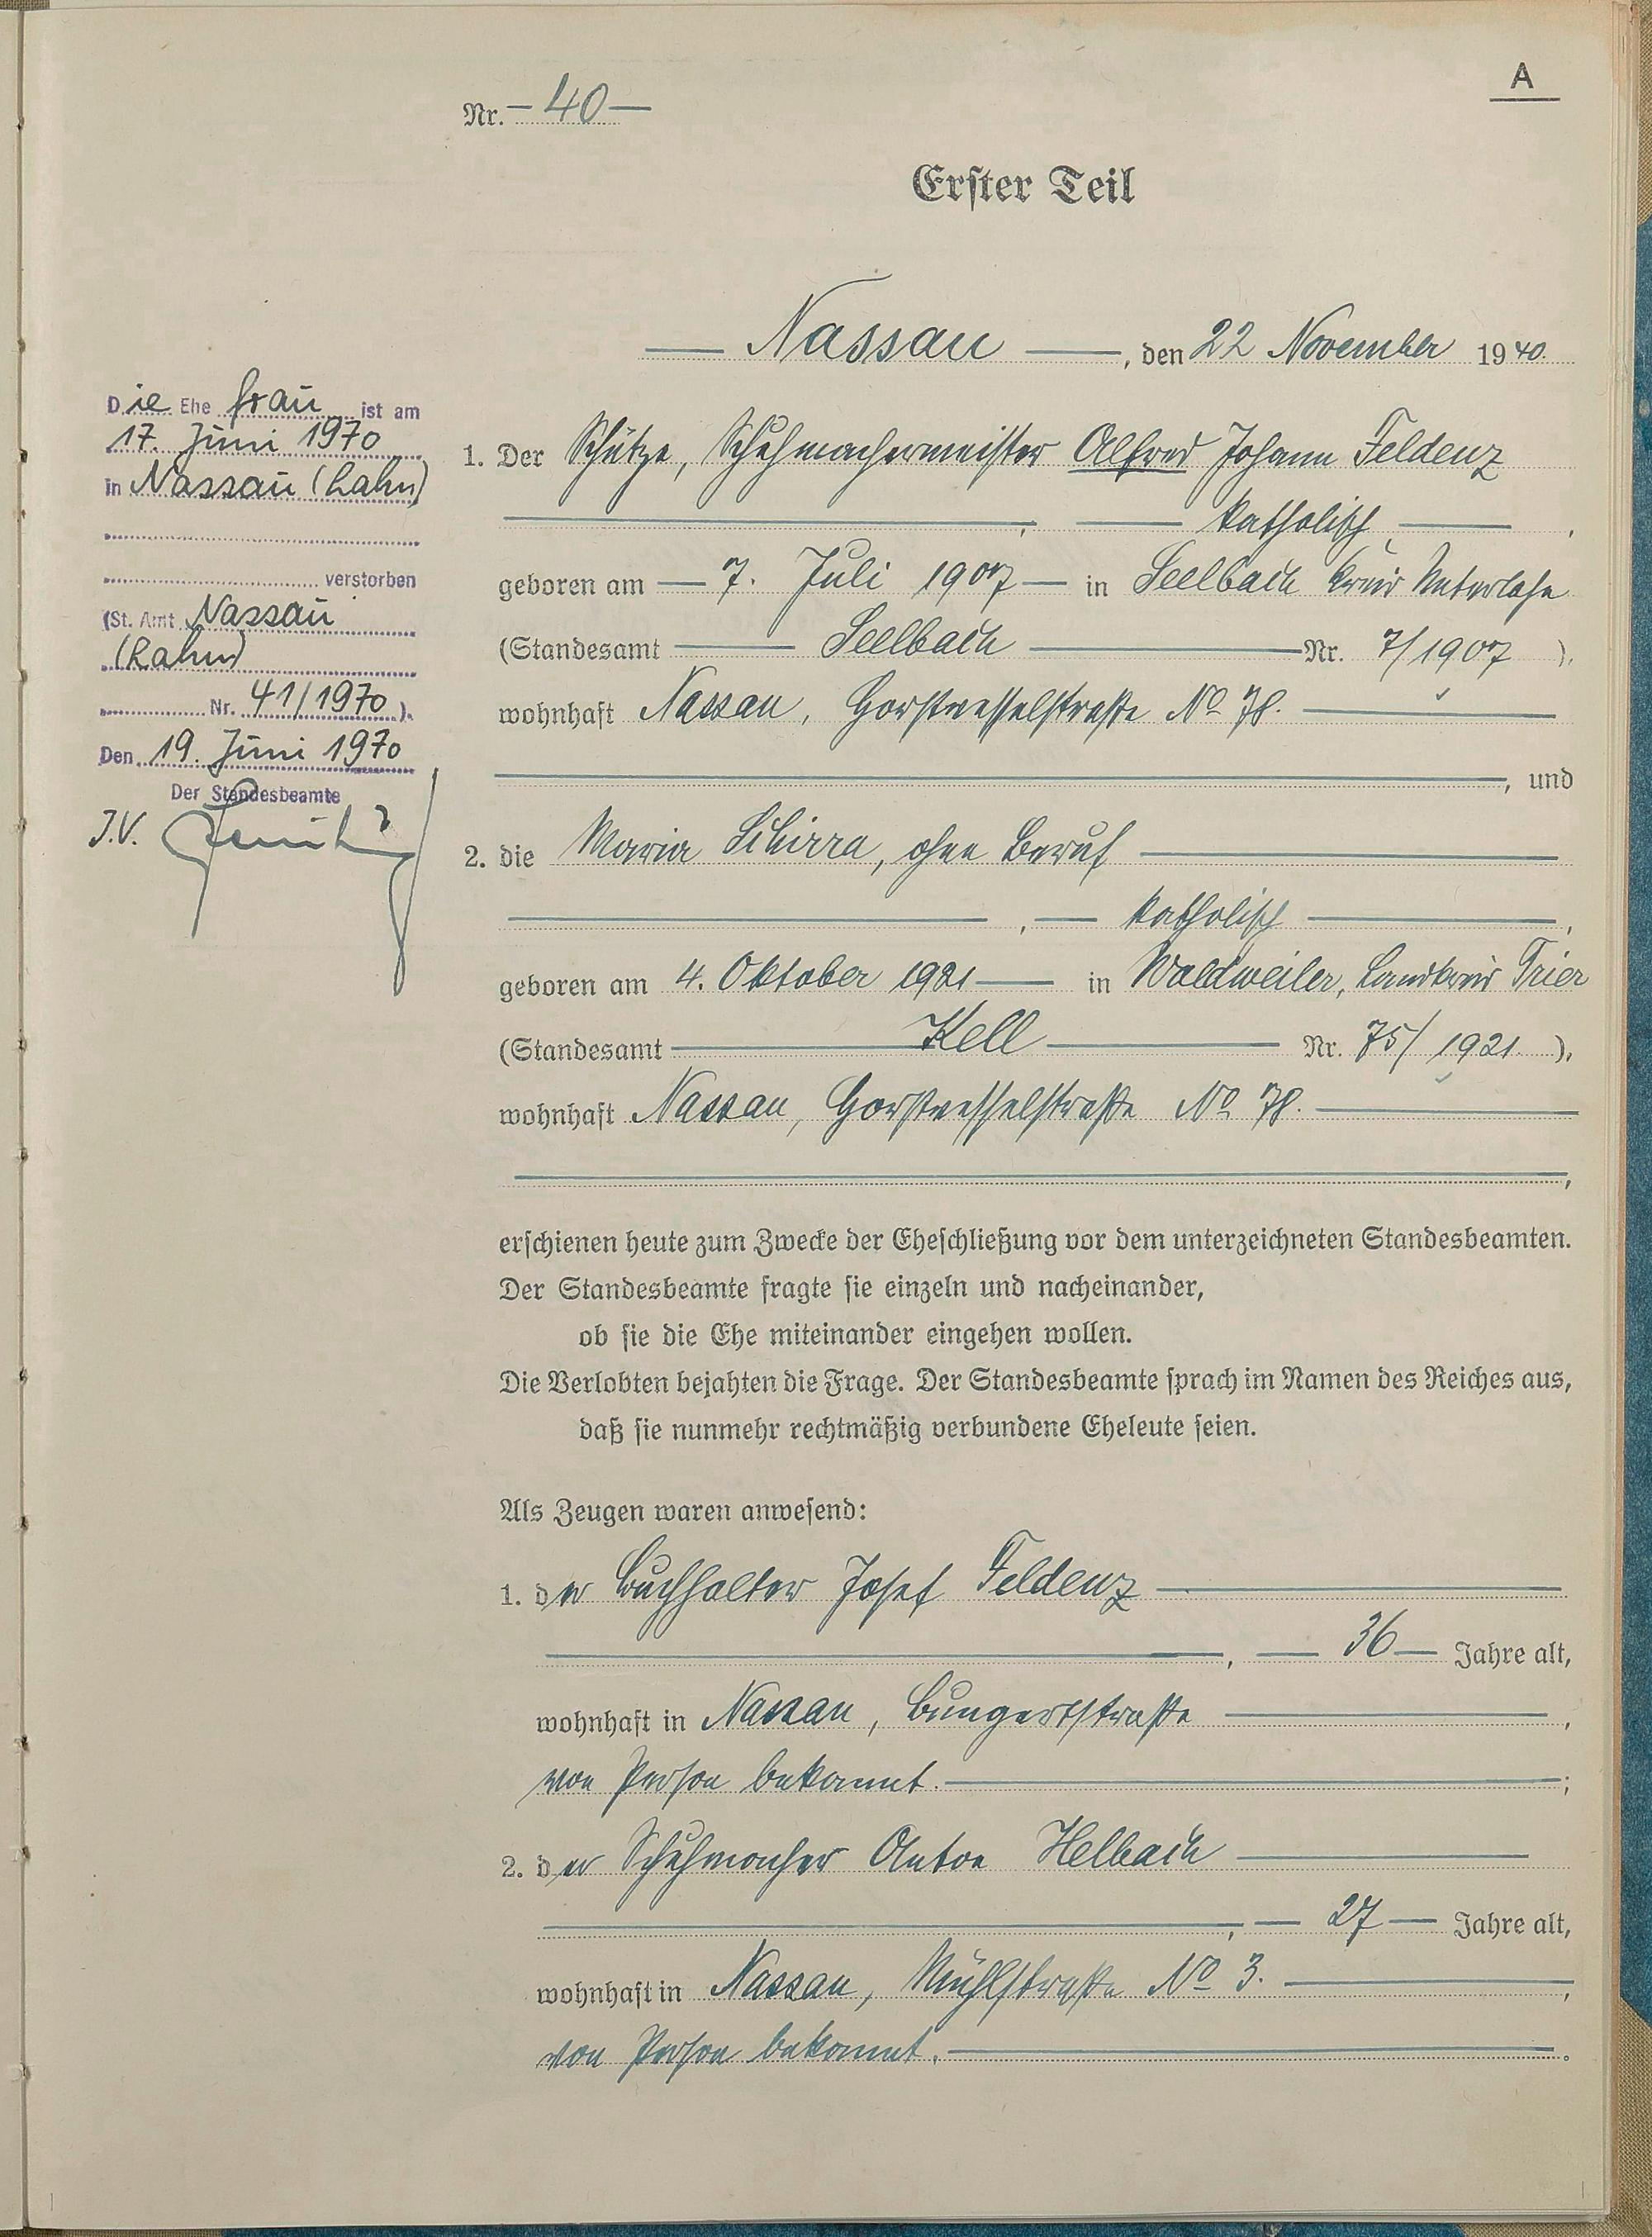 A
Nr. – 40 –
Erster Teil
Nassau, den 22 November 1940.
1. Der Schütze, Schuhmachermeister Alfred Johann Feldenz
, katholisch,
geboren am 7. Juli 1907 in Seelbach Kreis Unterlahn
(Standesamt Seelbach Nr. 7/1907 ),
wohnhaft Nassau, Horstwesselstraße No 78.
, und
2. die Maria Schirra, ohne Beruf
, katholisch,
geboren am 4. Oktober 1921 in Waldweiler, Landkreis Trier
(Standesamt Kell Nr. 75/1921. ),
wohnhaft Nassau, Horstwesselstraße No 78.
,
erschienen heute zum Zwecke der Eheschließung vor dem unterzeichneten Standesbeamten.
Der Standesbeamte fragte sie einzeln und nacheinander,
ob sie die Ehe miteinander eingehen wollen.
Die Verlobten bejahten die Frage. Der Standesbeamte sprach im Namen des Reiches aus,
daß sie nunmehr rechtmäßig verbundene Eheleute seien.
Als Zeugen waren anwesend:
1. der Buchhalter Josef Feldenz
, 36 Jahre alt,
wohnhaft in Nassau, Bungertstraße,
von Person bekannt. ;
2. der Schuhmacher Anton Helbach
, 27 Jahre alt,
wohnhaft in Nassau, Mühlstraße No 3. ,
von Person bekannt. .
Die Ehefrau ist am
17. Juni 1970
in Nassau (Lahn)
verstorben
(St. Amt Nassau
(Lahn)
Nr. 41/1970 ).
Den 19. Juni 1970
Der Standesbeamte
J.V.